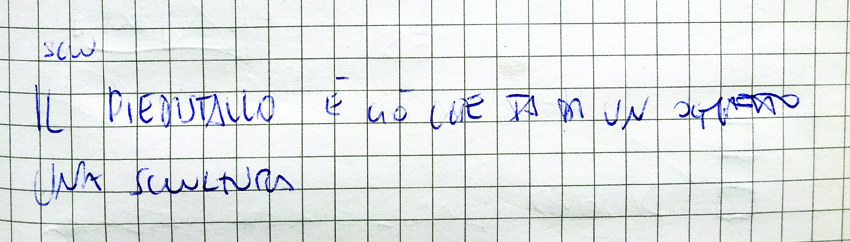 SCU
IL PIEDISTALLO È CIÒ CHE FA DI UN OGGETTO
UNA SCULTURA